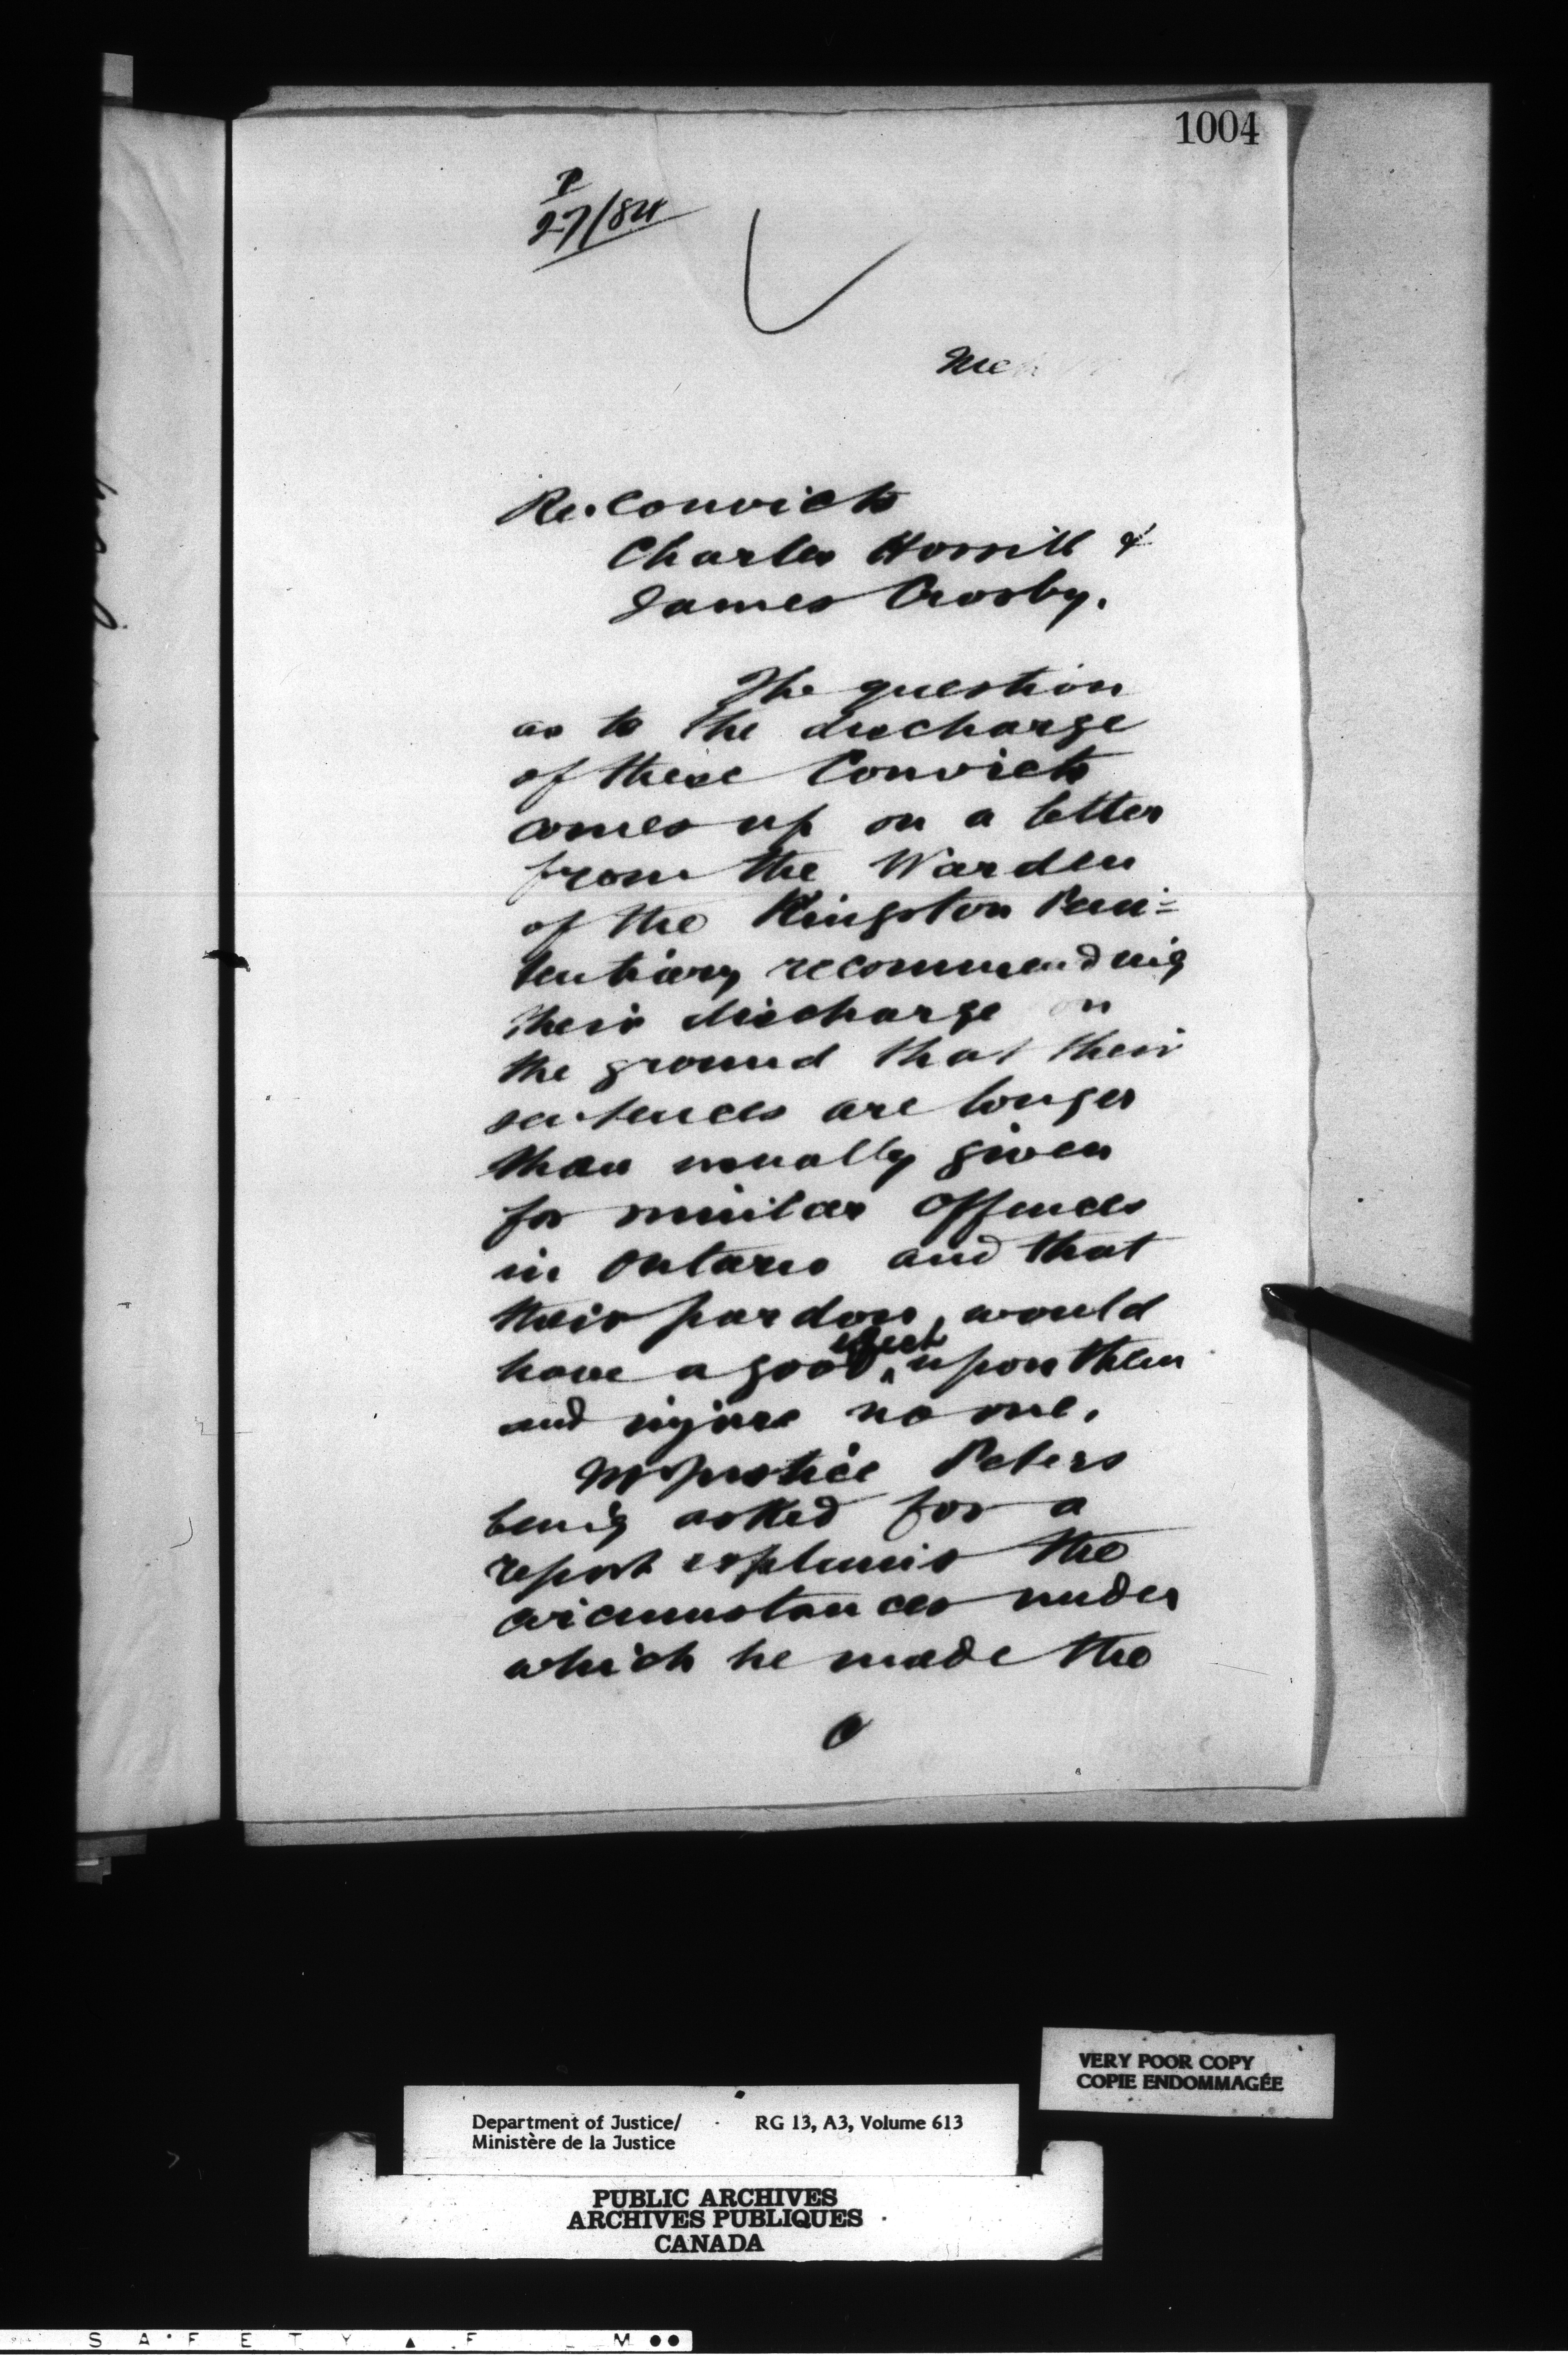 1004
P
27/84
Re. Convicts
Charles Horrill &
James Crosby.
The question
as to the discharge
of these Convicts
comes up on a letter
from the Warden
of the Kingston Peni=
tentiary recommending
their discharge on
the ground that their
sentences are longer
than usually given
for similar offences
in Ontario and that
their pardon, would
have a good effect upon them
and injure no one.
Mr Justice Peters
being asked for a
report explains the
circumstances under
which he made the
VERY POOR COPY
COPIE ENDOMMAGÉE
Department of Justice/ RG 13, A3, Volume 613
Ministère de la Justice
PUBLIC ARCHIVES
ARCHIVES PUBLIQUES
CANADA
S A F E T Y F M